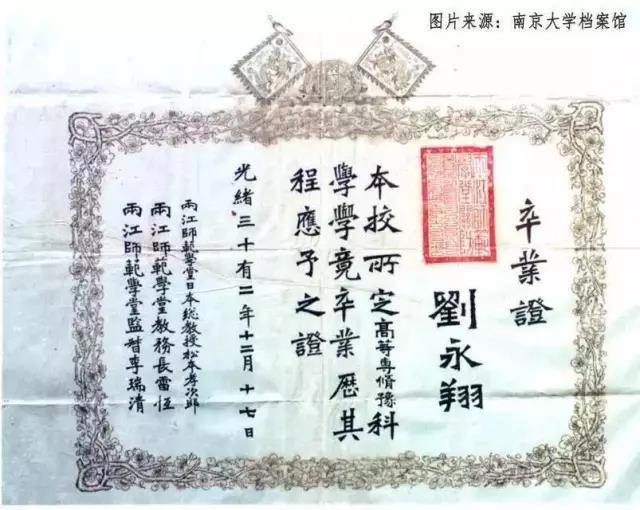 图片来源：南京大学档案馆
卒業證
劉永翔
本校所定高等專脩豫科
學學竟卒業歷其
程應予之證
光緒三十有二年十二月十七日
兩江師範學堂日本總教授松本孝次郎
兩江師範學堂教務長雷恒
兩江師範學堂監督李瑞清